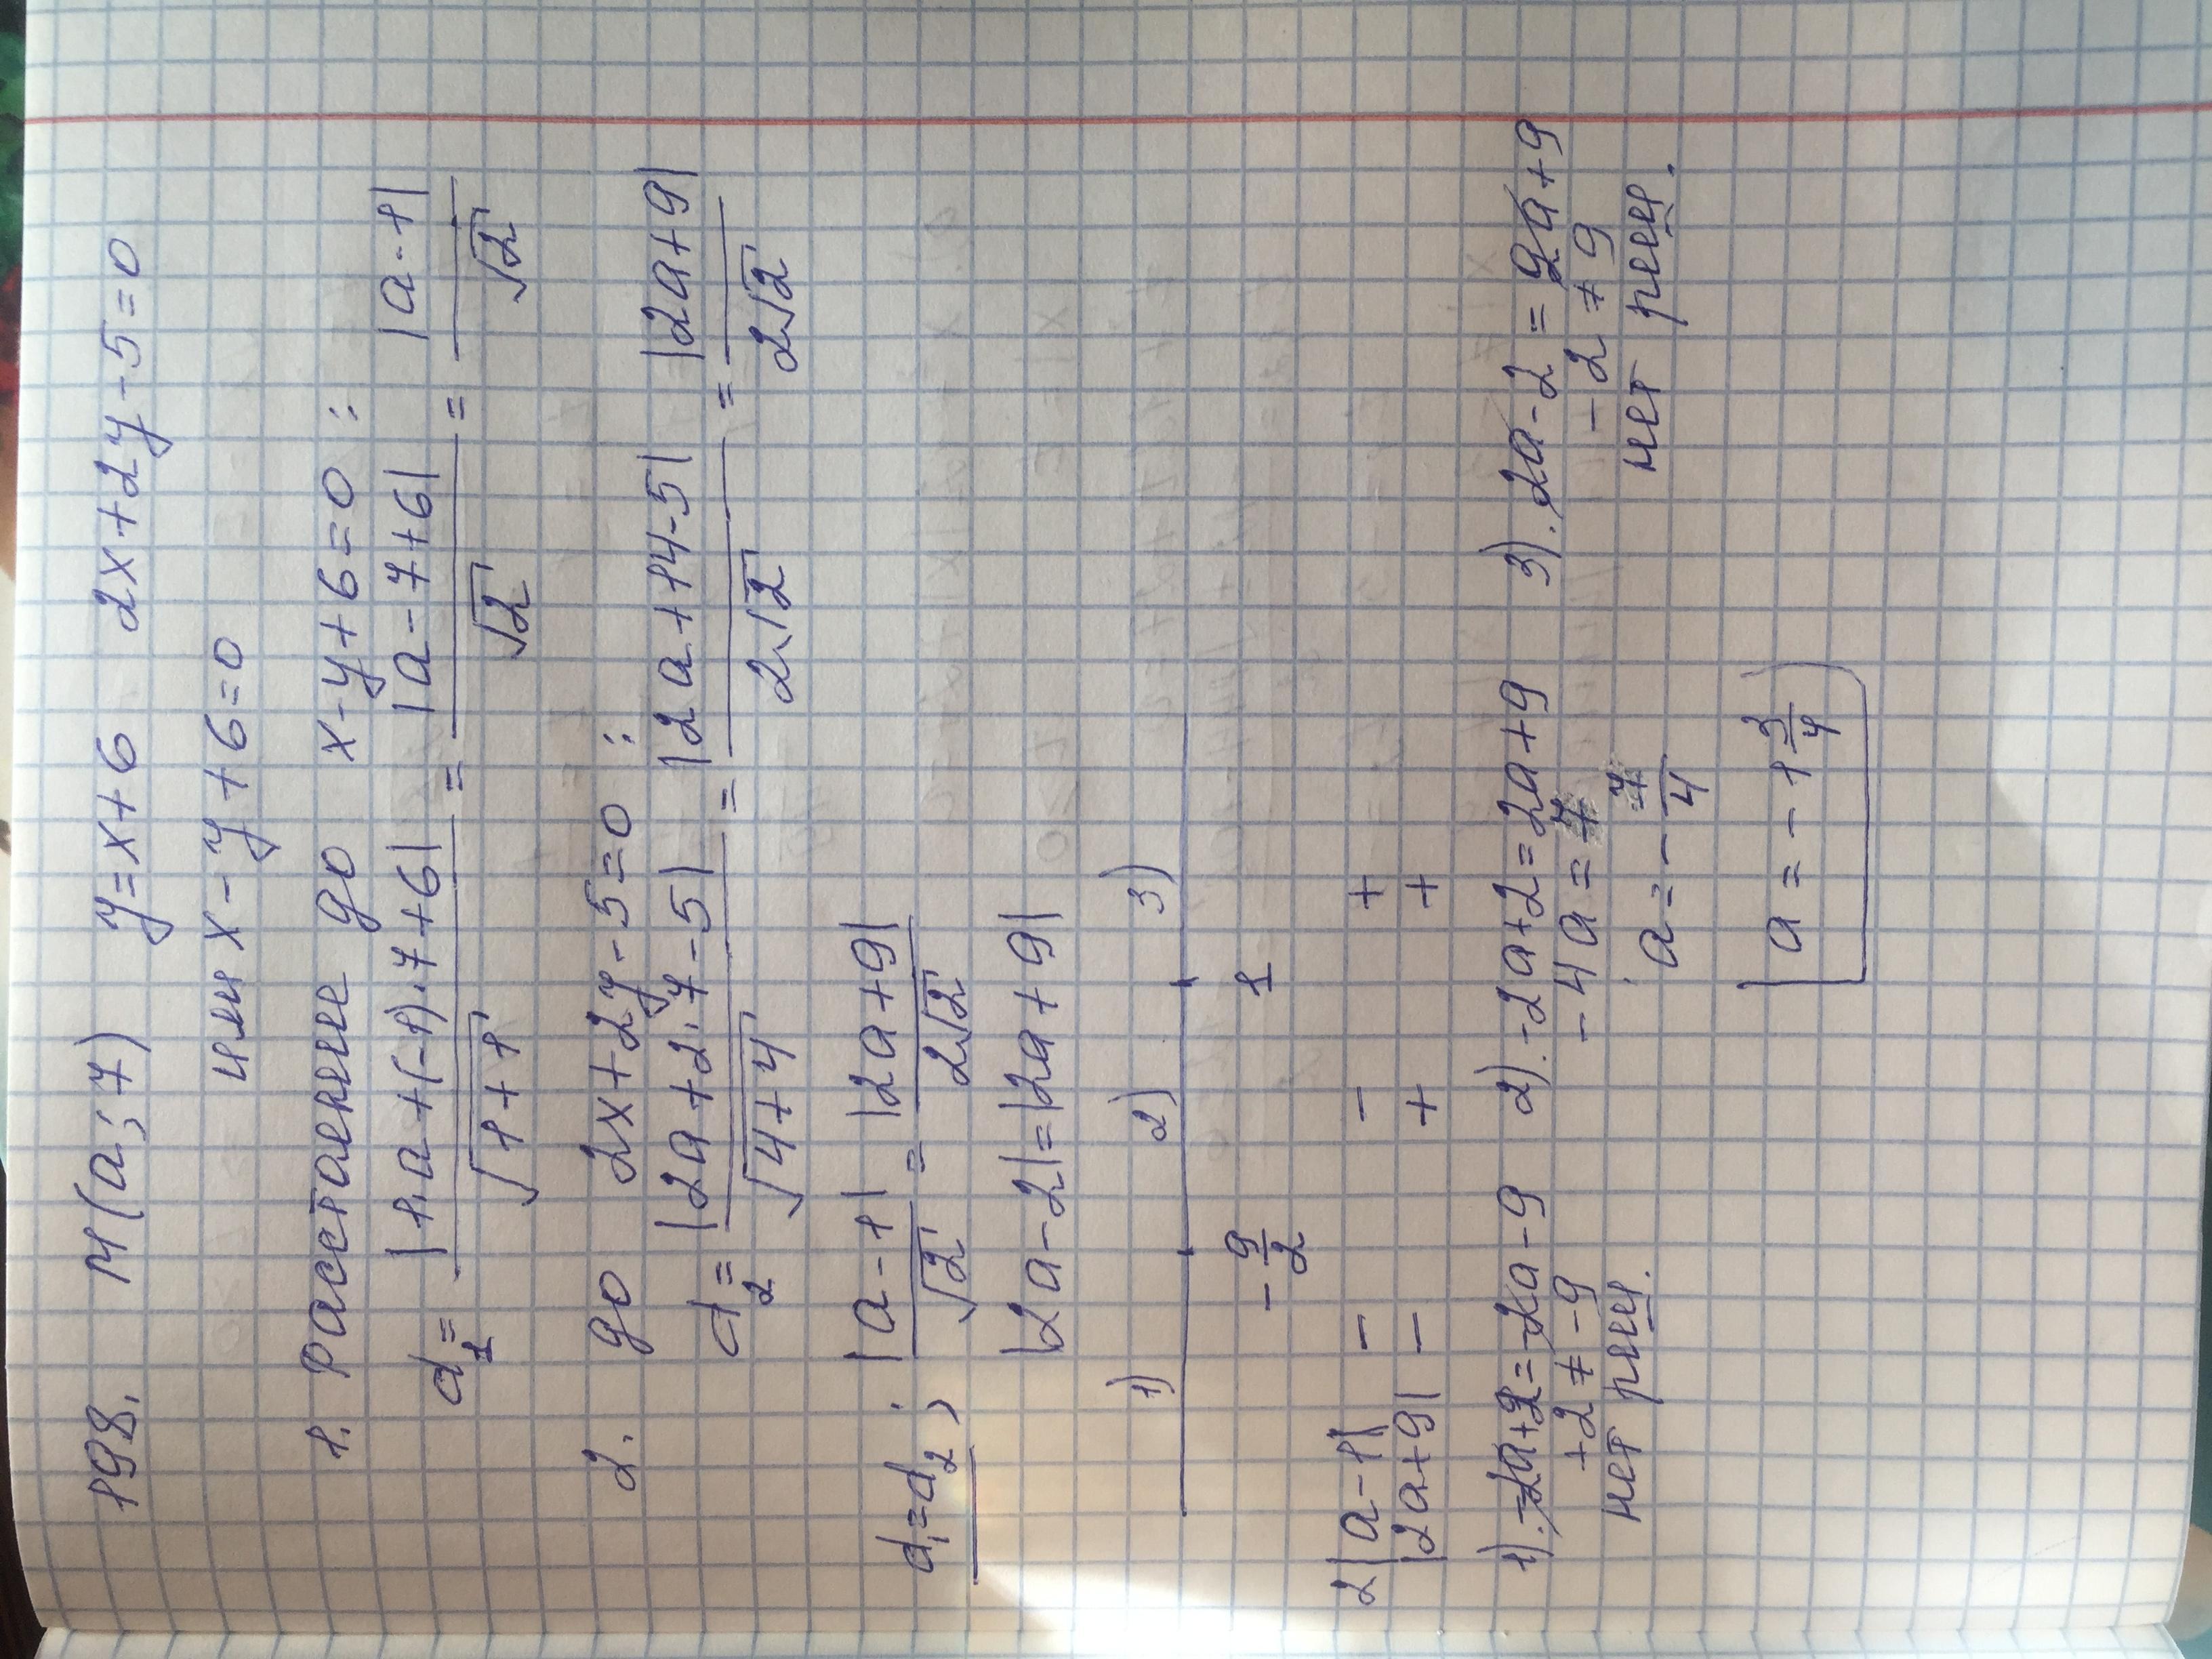 198. М(a; 7) y=x+6 2x+2y-5=0
или x-y+6=0
1. Расстаение до x-y+6=0 :
d₁= |1·a+(-1)·7+6| / √1+1 = |a-7+6| / √2 = |a-1| / √2
2. до 2x+2y-5=0 :
d₂= |2a+2·7-5| / √4+4 = |2a+14-5| / 2√2 = |2a+9| / 2√2
d₁=d₂ ; |a-1| / √2 = |2a+9| / 2√2
|2a-2|=|2a+9|
1) 2) 3)
-9/2 1
2|a-1| - - +
|2a+9| - + +
1). -2a+2=-2a-9 2). -2a+2=2a+9 3). 2a-2=2a+9
+2≠-9 -4a=7 -2≠9
нет реш. a=-7/4 нет реш.
a=-1 3/4